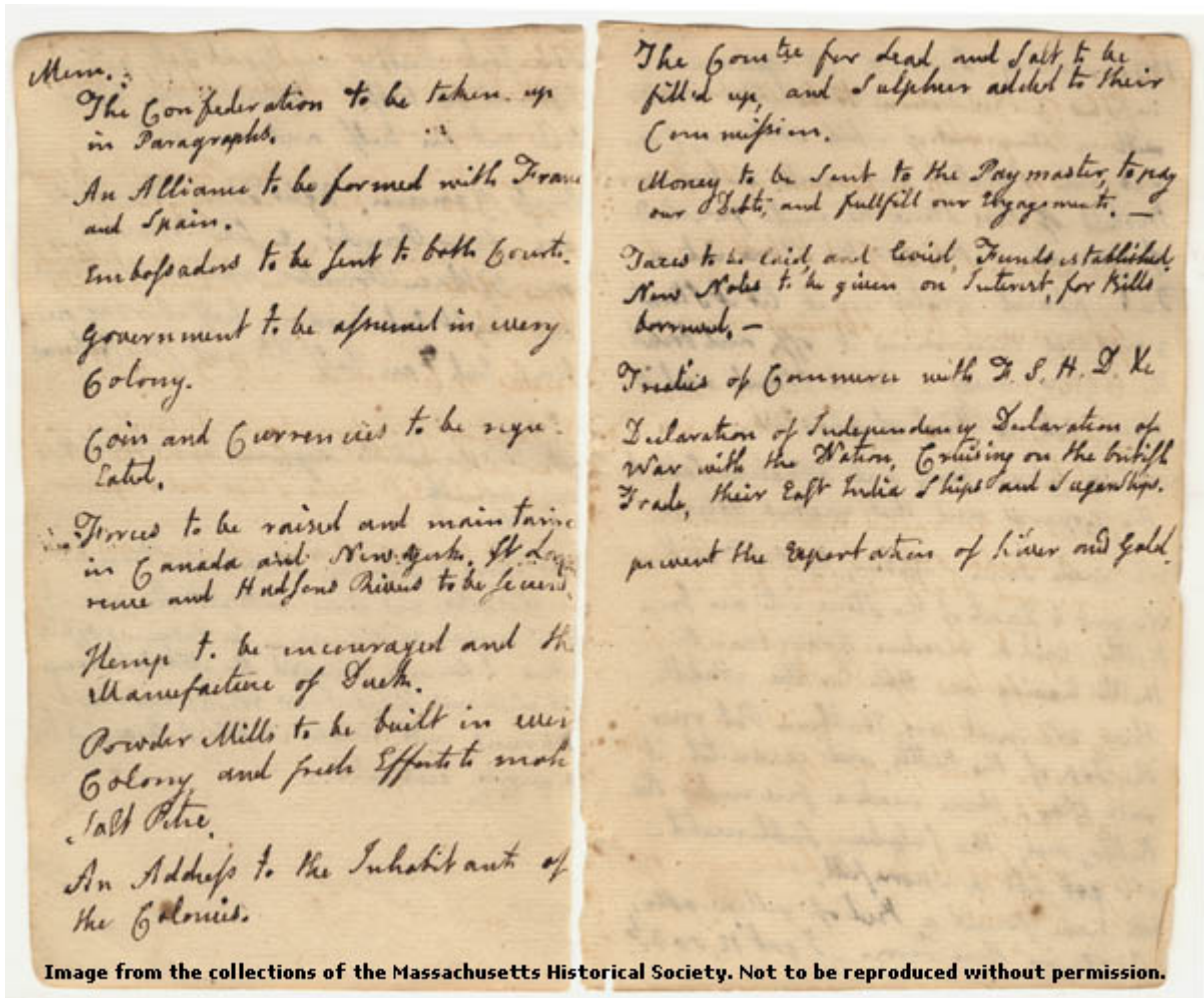 Mem.
The Confederation to be taken up
in Paragraphs.
An Alliance to be formed with France
and Spain.
Embassadors to be sent to both Courts.
Government to be assumed in every
Colony.
Coin and Currencies to be regu-
lated.
Forces to be raised and maintaind
in Canada and New York. St. Law
rence and Hudsons Rivers to be secured.
Hemp to be encouraged and the
Manufacture of Duck.
Powder Mills to be built in every
Colony, and fresh Efforts to make
Salt Petre.
An Address to the Inhabitants of
the Colonies.
The Comtee for Lead and Salt, to be
fill'd up, and Sulphur added to their
Commission.
Money to be sent to the Paymaster, to pay
our Debts, and fullfill our Engagements. —
Taxes to be laid, and levied, Funds established.
New Notes to be given on Interest, for Bills
borrowed. —
Treaties of Commerce with F. S. H. D. &c
Declaration of Independency, Declaration of
War with the Nation, Cruising on the british
Trade, their East India Ships and Sugar Ships.
prevent the Exportation of Silver and Gold.
Image from the collections of the Massachusetts Historical Society. Not to be reproduced without permission.